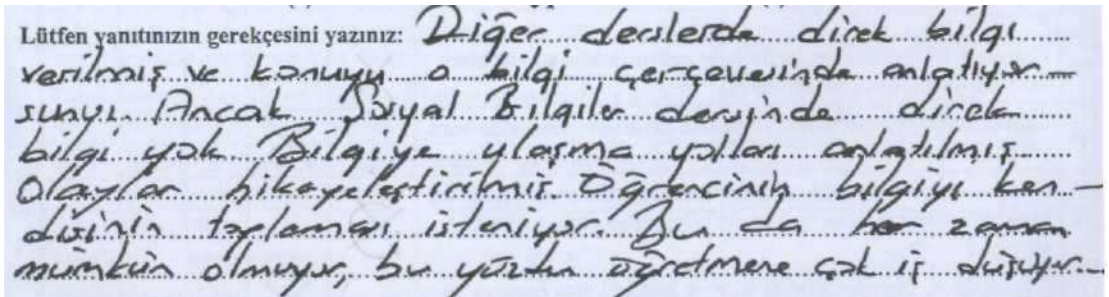 Lütfen yanıtınızın gerekçesini yazınız: Diğer derslerde direk bilgi
verilmiş ve konuyu o bilgi çerçevesinde anlatıyor
sunuz. Ancak Sosyal Bilgiler dersinde direk
bilgi yok. Bilgiye ulaşma yolları anlatılmış.
Olaylar hikayeleştirilmiş. Öğrencinin bilgiyi ken-
disinin toplaması isteniyor. Bu da her zaman
mümkün olmuyor, bu yüzden öğretmene çok iş düşüyor.